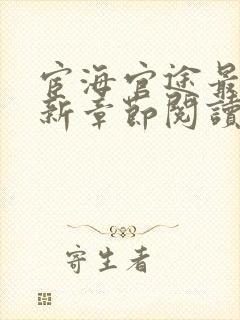 宦海官途最
新章節閱讀
寄生者